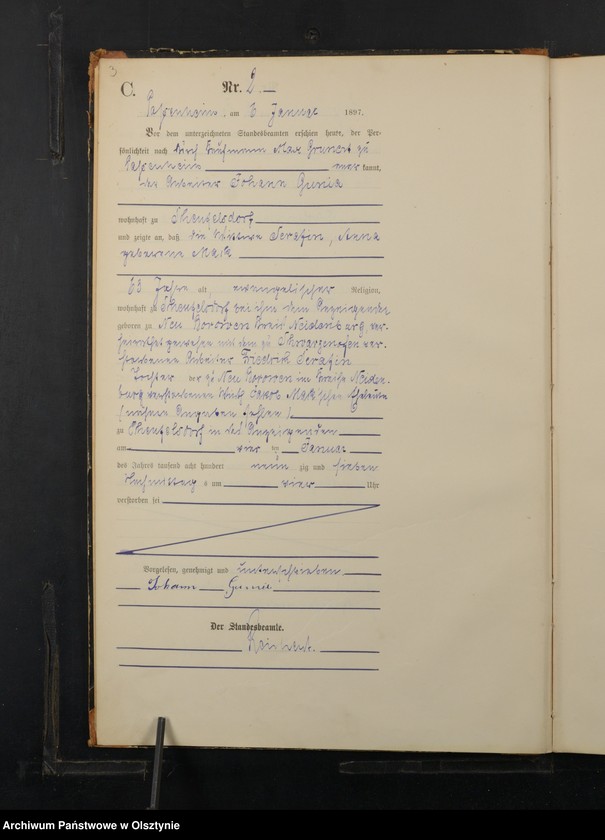 3
C. Nr. 2.
Passenheim, am 6 Januar 1897.
Vor dem unterzeichneten Standesbeamten erschien heute, der Per-
sönlichkeit nach durch Kaufmann Max Grunert zu
Passenheim anerkannt,
der Arbeiter Johann Gunia
wohnhaft zu Scheufelsdorf
und zeigte an, daß die Wittwe Serafin, Anna
geborene Malk
63 Jahre alt, evangelischer Religion,
wohnhaft zu Scheufelsdorf bei ihm dem Anzeigenden
geboren zu Neu Borowen Kreis Neidenburg, ver-
heirathet gewesen mit dem zu Schwarzenofen ver-
storbenen Arbeiter Friedrich Serafin
Tochter der zu Neu Borowen im Kreise Neiden-
burg verstorbenen Wirth Jacob Malk'schen Eheleute
(nähere Angaben fehlen)
zu Scheufelsdorf in des Anzeigenden
am vier ten Januar
des Jahres tausend acht hundert neun zig und sieben
Nachmittags um vier Uhr
verstorben sei
Vorgelesen, genehmigt und unterschrieben
Johann Gunia
Der Standesbeamte.
Archiwum Państwowe w Olsztynie